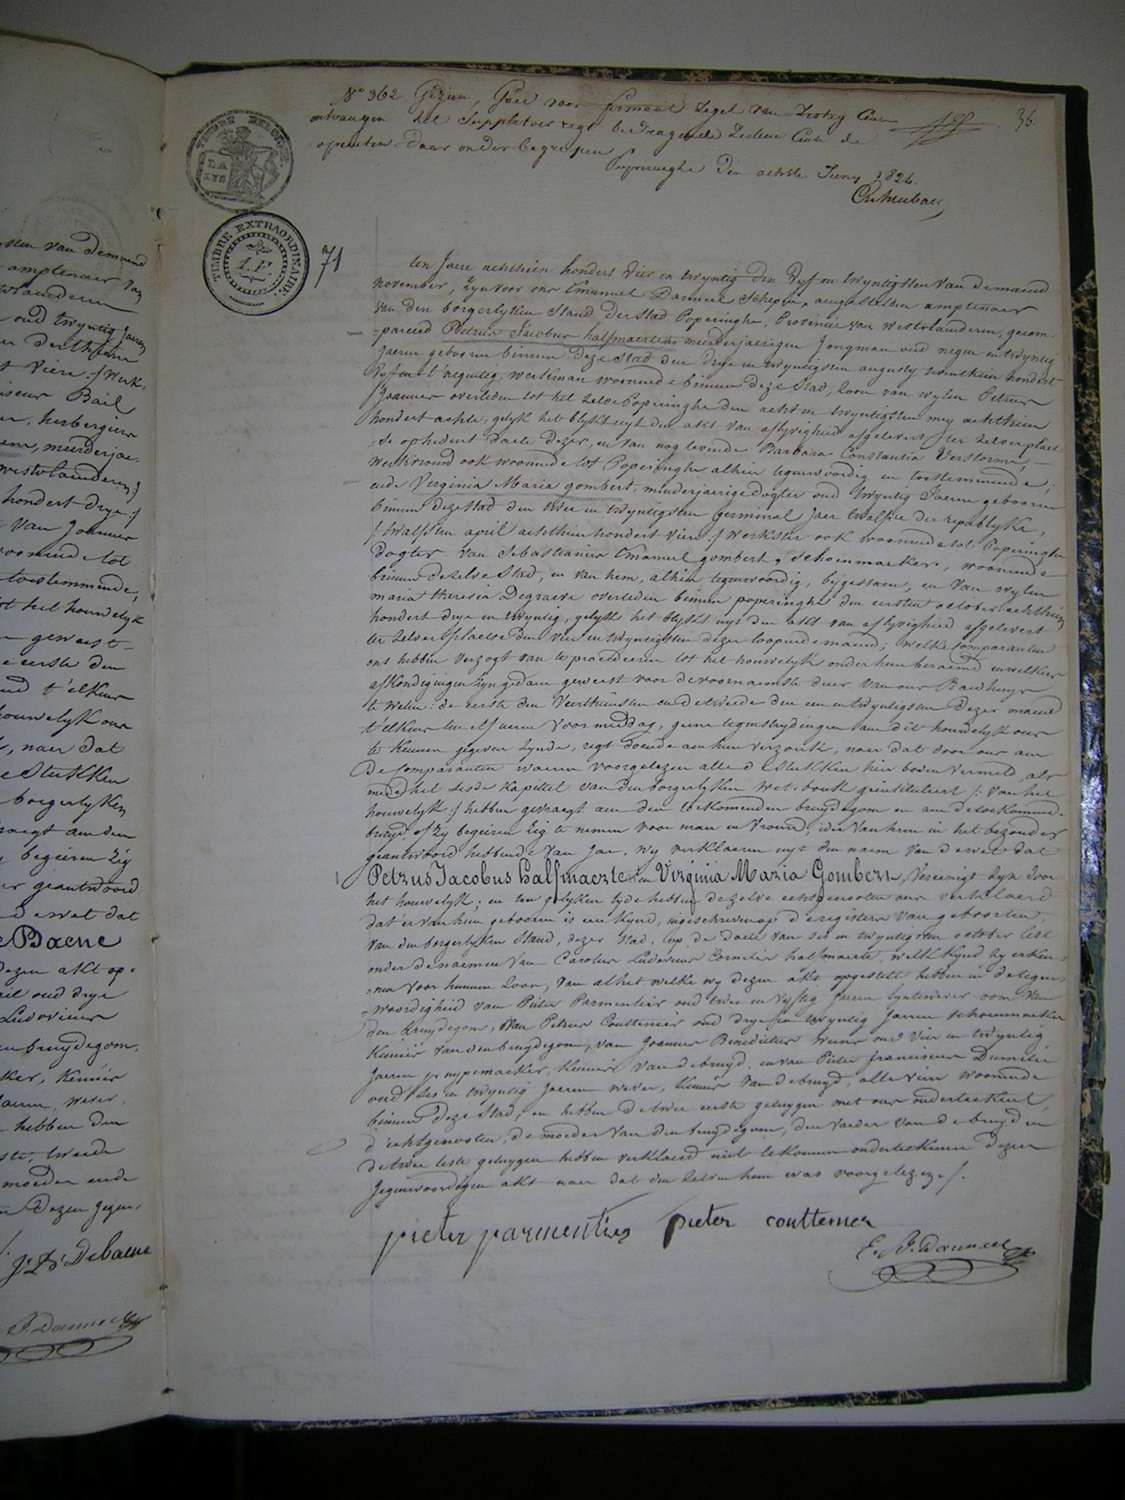 sten van de maend
amptenaer van
oud twyntig Jaeren
Vier ./ Werk-
Bail
herbergier
meerderjae-
westvlaenderen ./
hondert drye ./
van Joannes
woonende tot
toestemmende,
het houwelyk
geweest
eerste den
t'elkens
houwelyk ons
, naer dat
stukken
borgerlyken
aen den
begeiren zig
geantwoord
de wet dat
Baene
dezen akt op-
oud drye
Ludovicus
bruydegom,
Kennis
Jaeren, wever,
hebben den
tweede
moeder ende
dezen gegen-
Debaene
N° 362 Gezien, Goed voor formaet Zegel van Zestig Cents
ontvangen het Suppletoir regt bedragende Zestien Cents de
opcenten daer onder begrepen
Poperinghe den achste Juny 1824.
36.
TIMBRE EXTRAORDINAIRE.
71
ten Jaere achthien hondert vier en twyntig den vyf en twyntigsten van de maend
november, zyn voor ons Emanuel Donneel Schepen, aengestelden amptenaer
van den borgerlyken stand der stad Poperinghe, Provintie van Westvlaenderen, gecom-
-pareerd Petrus Jacobus halfmaerte meerderjaerigen Jongman oud negen en twyntig
Jaeren geboren binnen deze stad den drye en twyntigsten augusty seventhien hondert
vyf en t'negentig werkman woonende binnen deze stad, zoon van wylen Petrus
Joannes overleden tot het zelve Poperinghe den acht en twyntigsten mey achthien
hondert achte, gelyk het blykt uyt den akt van aflyvigheid afgelevert ter zelver plaet-
-se op hedent daete dezer, en van nog levende Barbara Constantia Verstorme,
werkvrouw ook woonende tot Poperinghe alhier tegenwoordig en toestemmende;
ende Virginia Maria gombert, minderjaerige dogter oud twyntig Jaeren geboren
binnen deze stad den twee en twyntigsten germinal Jaer twaelf der republyke,
/ twaelfsten april achthien hondert vier / werkster ook woonende tot Poperinghe
Dogter van Sebastianus Emanuel gombert, schoenmaeker, woonende
binnen de zelve stad, en van hem, alhier tegenwoordig, bygestaen, en van wylen
maria theresia Degraeve overleden binnen poperinghe den eersten october achthien
hondert drye en twyntig, gelyk het blykt uyt den akt van aflyvigheid afgelevert
ter zelver plaetse den vier en twyntigsten dezer loopende maend; welke comparanten
ons hebben verzogt van te procedeeren tot het houwelyk onder hun beraemd en welkers
afkondigingen zyn gedaen geweest voor de voornaemste deur van ons Raedhuys
te weten: de eerste den veerthiensten en de tweede den een en twyntigsten dezer maend
t'elkens ten elf ueren voormiddag, geene tegenstrydingen aen dit houwelyk ons
te kennen gegeven zynde, regt doende aen hun verzoek, naer dat door ons aen
de comparanten waeren voorgelezen alle de stukken hier boven vermeld, als
mede het sesde kapittel van den borgerlyken wet-boek geintituleert /: van het
houwelyk :/ hebben gevraegt aen den toekomenden bruydegom en aen de toekomende
bruyd, of zy begeiren zig te nemen voor man en vrouw; ider van hun in het bezonder
geantwoord hebbende van Jae, wy verklaeren uyt den naem van de wet dat
Petrus Jacobus halfmaerte en Virginia Maria Gombert, vereenigt zyn door
het houwelyk; en ten gelyken tyde hebben dezelve echtgenooten ons verklaerd
dat er van hun geboren is een kind, ingeschreven op de registers van geboorten
van den borgerlyken stand, dezer stad, op de daete van ses en twyntigsten october lest
onder de naemen van Carolus Ludovicus Cornelis halfmaerte, welk kind zy erken-
-nen voor hunnen zoon, van al het welke wy dezen akt opgestelt hebben in de tegen-
-woordigheid van Pieter Parmentier oud twee en vyftig Jaeren lyntwever oom van
den bruydegom, van Petrus Couttenier oud drye en twyntig Jaeren schoenmaeker
Kennis van den bruydegom, van Joannes Benedictus oud vier en twyntig
Jaeren Kennis van de bruyd, en van Pieter franciscus Dumelie
oud ses en twyntig Jaeren wever, Kennis van de bruyd, alle vier woonende
binnen deze stad; en hebben de twee eerste getuygen met ons onderteekent,
d'echtgenooten, de moeder van den bruydegom, den vaeder van de bruyd en
de twee leste getuygen hebben verklaerd niet te konnen onderteekenen dezen
Jegenwoordigen akt naer dat den zelven hun was voorgelezen ./.
pieter parmentier pieter couttenier
E. J. Donneel